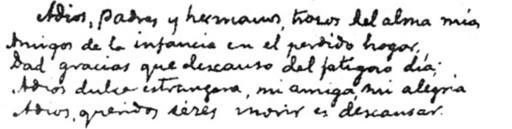 Adios, padres y hermanos, trozos del alma mía
Amigos de la infancia en el perdido hogar,
Dad gracias que descanso del fatigoso día;
Adios dulce estrangera, mi amiga, mi alegría
Adios, queridos séres morir es descansar.